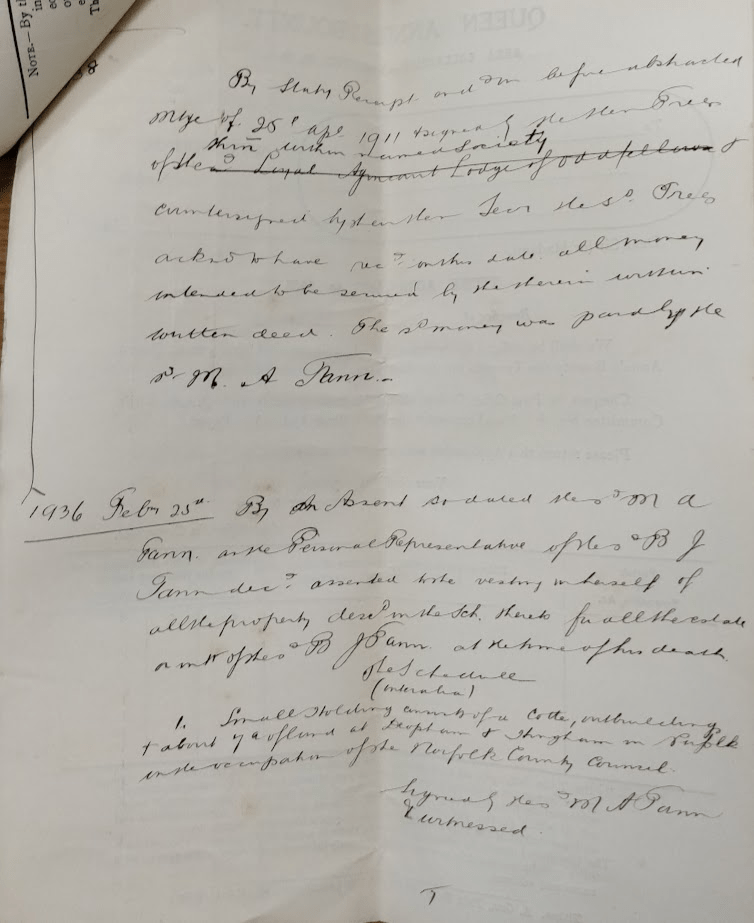 NOTE.—By th
in
ec
o
Th
By Staty Receipt end on before abstracted
mtge of 25th Apl 1911 & signed by the then Trees
then within named Society
of the sd Loyal Agmeant Lodge of Oddfellows &
countersigned by the then Secr the sd Trees
acknd to have recd on this date all money
intended to be secured by the therein within
written deed. The sd money was paid by the
sd M. A Fann.-
1936 Feby 25th By An Assent so dated the sd M A
Fann as the Personal Representative of the sd B J
Fann decd assented to the vesting in herself of
all the property descd in the Sch. thereto for all the estate
or intt of the sd B J Fann at the time of his death
The Schedule
(inter alia)
1. Small Holding consistg of a Cotte, outbuildings
& about 7a of land at Deopham & Hingham in Norfolk
in the occupation of the Norfolk County Counsel.
Signed by the sd M A Fann
& witnessed.